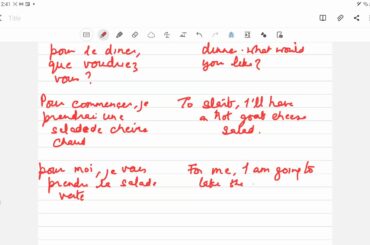 2:41
Title
pour le diner,
que voudriez
vous ?
dinner. what would
you like?
Pour commencer, je
prendrai une
salade de chèvre
chaud
To start, I'll have
a hot goat cheese
salad.
pour moi, je vais
prendre la salade
verte
For me, I am going to
take the